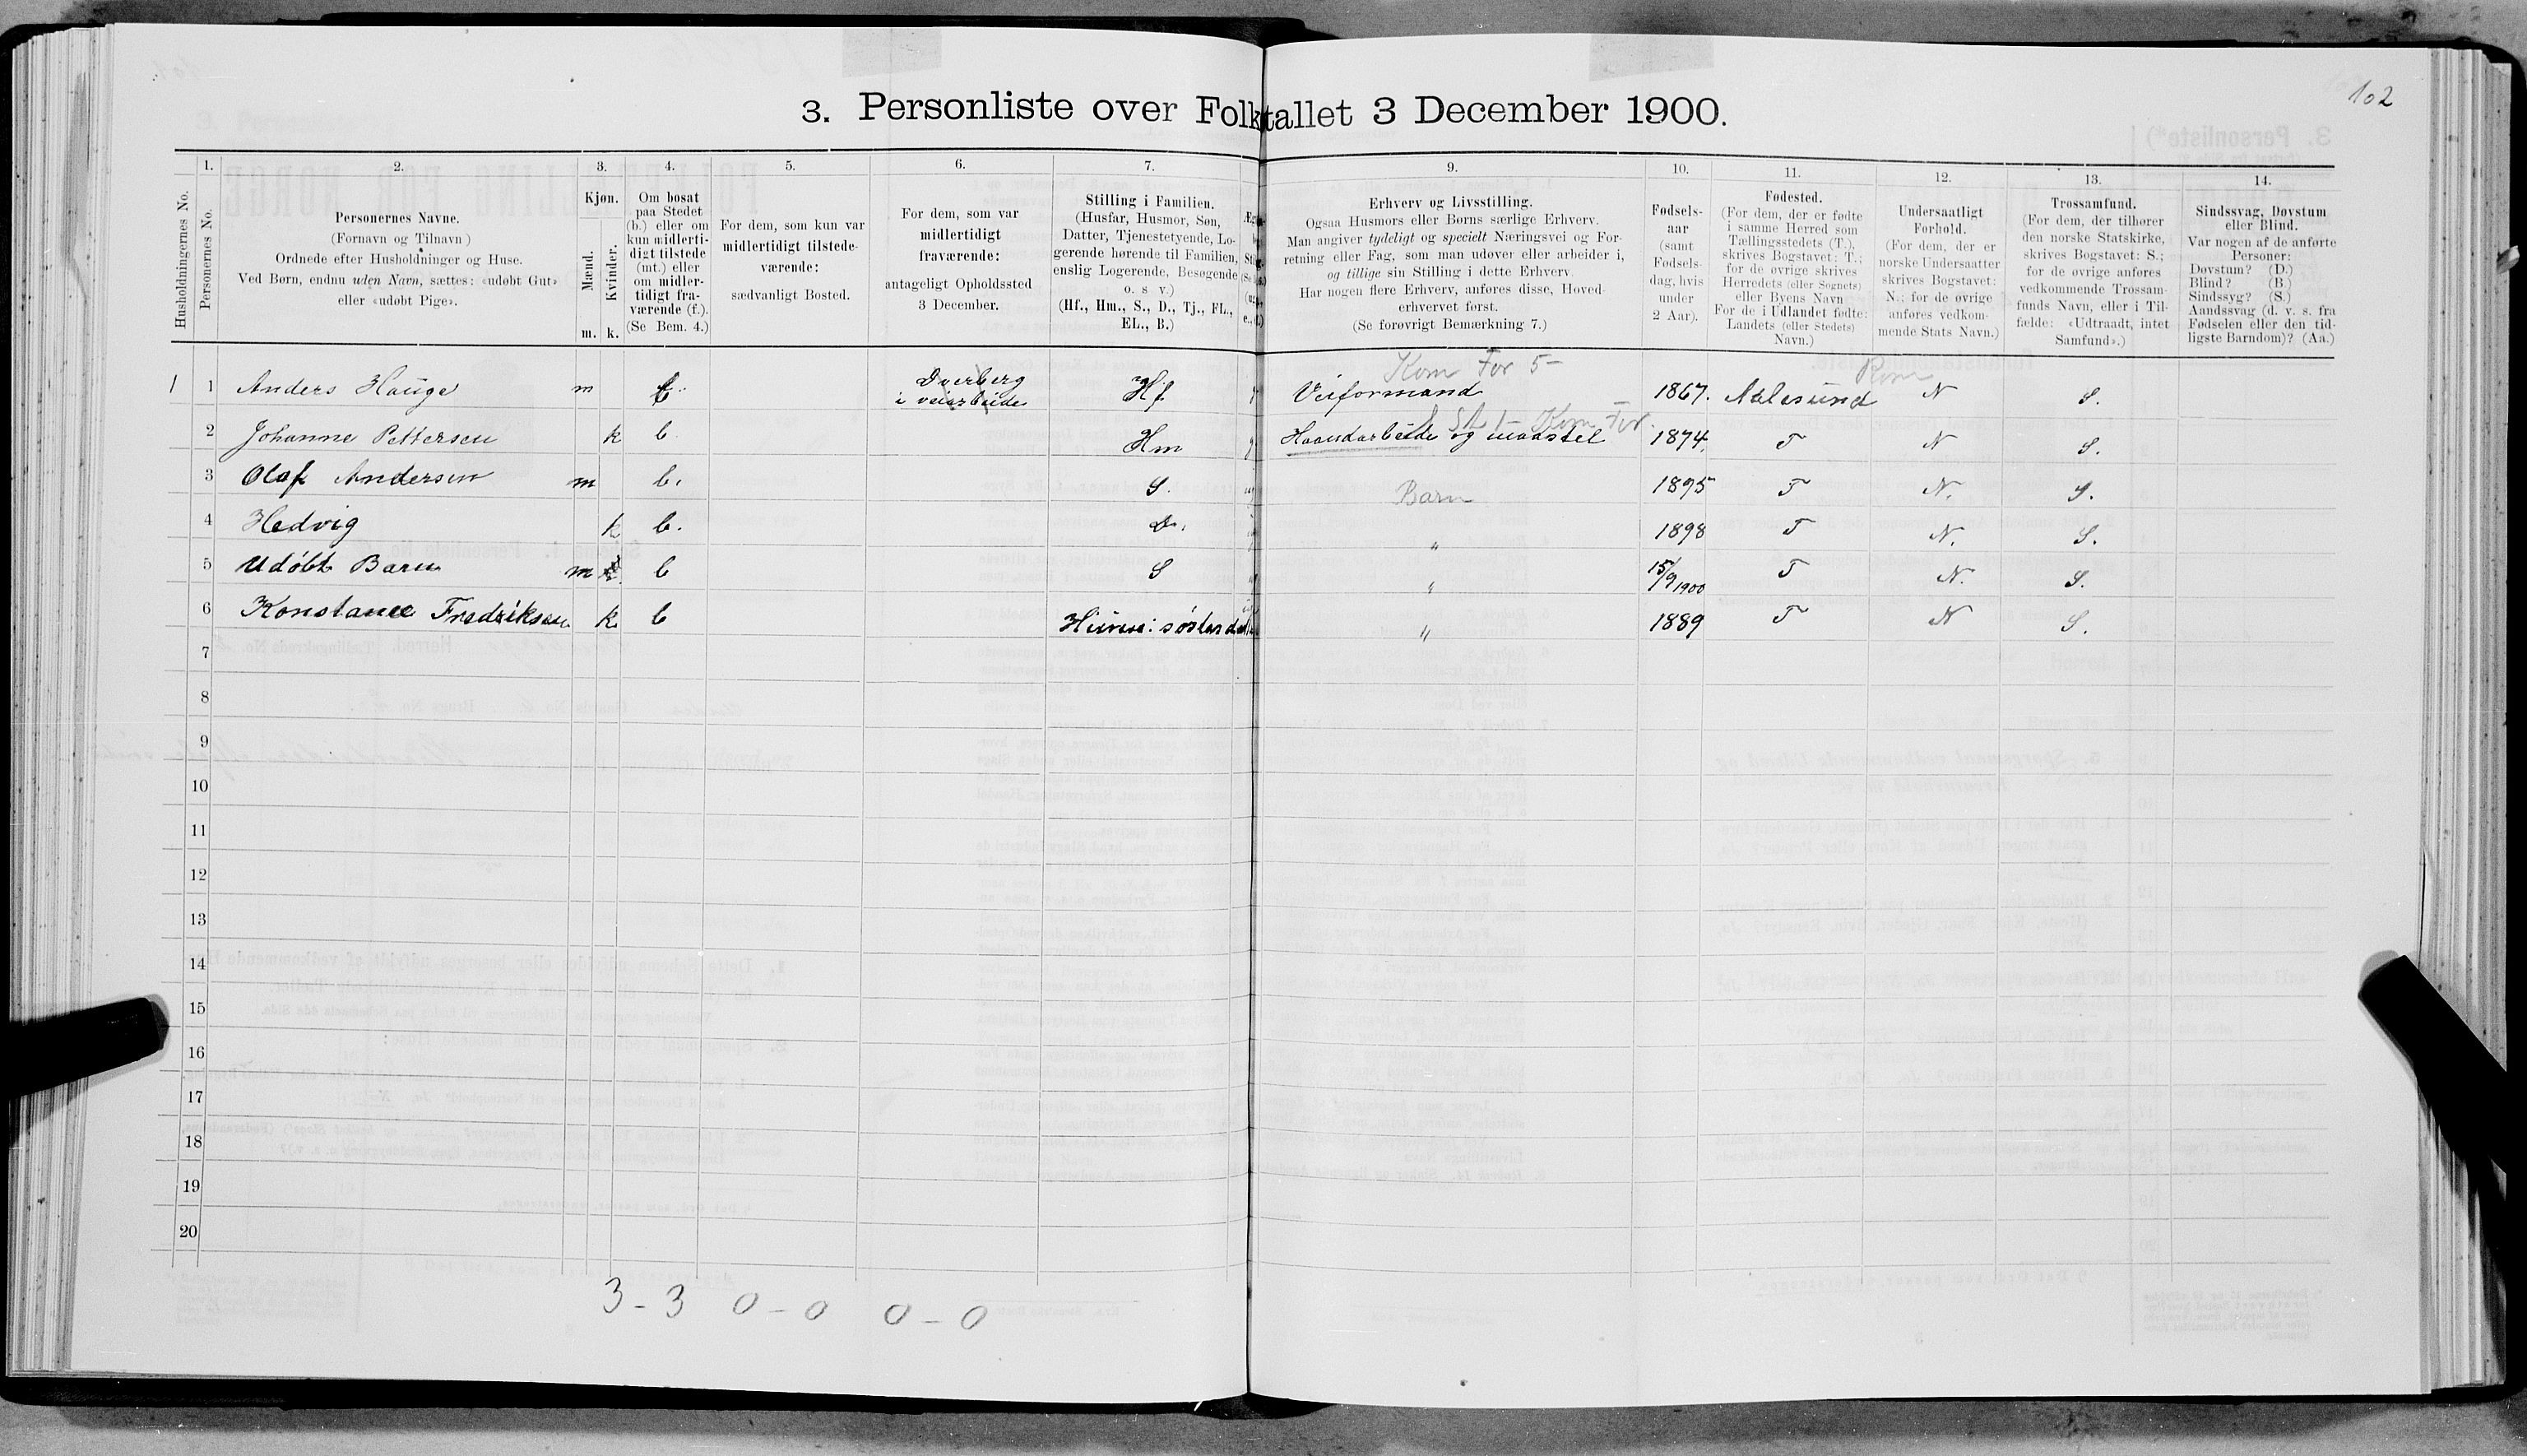 102
3. Personliste over Folketallet 3 December 1900.
1. 2. 3. 4. 5. 6. 7. 9. 10. 11. 12. 13. 14.
Husholdningernes No.
Personernes No.
Personernes Navne.
(Fornavn og Tilnavn)
Ordnede efter Husholdninger og Huse.
Ved Børn, endnu uden Navn, sættes: «udøbt Gut»
eller «udøbt Pige».
Kjøn.
Mænd.
Kvinder.
m. k.
Om bosat
paa Stedet
(b.) eller om
kun midlerti-
digt tilstede
(mt.) eller
om midler-
tidigt fra-
værende (f.).
(Se Bem. 4.)
For dem, som kun var
midlertidigt tilstede-
værende:
sædvanligt Bosted.
For dem, som var
midlertidigt
fraværende:
antageligt Opholdssted
3 December.
Stilling i Familien.
(Husfar, Husmor, Søn,
Datter, Tjenestetyende, Lo-
gerende hørende til Familien,
enslig Logerende, Besøgende
o. s. v.)
(Hf., Hm., S., D., Tj., FL.,
EL., B.)
Erhverv og Livsstilling.
Ogsaa Husmors eller Børns særlige Erhverv.
Man angiver tydeligt og specielt Næringsvei og For-
retning eller Fag, som man udøver eller arbeider i,
og tillige sin Stilling i dette Erhverv.
Har nogen flere Erhverv, anføres disse, Hoved-
erhvervet først.
(Se forøvrigt Bemærkning 7.)
Fødsels-
aar
(samt
Fødsels-
dag, hvis
under
2 Aar).
Fødested.
(For dem, der er fødte
i samme Herred som
Tællingsstedets (T.),
skrives Bogstavet: T.;
for de øvrige skrives
Herredets (eller Sognets)
eller Byens Navn.
For de i Udlandet fødte:
Landets (eller Stedets)
Navn.)
Undersaatligt
Forhold.
(For dem, der er
norske Undersaatter
skrives Bogstavet:
N.; for de øvrige
anføres vedkom-
mende Stats Navn.)
Trossamfund.
(For dem, der tilhører
den norske Statskirke,
skrives Bogstavet: S.;
for de øvrige anføres
vedkommende Trossam-
funds Navn, eller i Til-
fælde: «Udtraadt, intet
Samfund».)
Sindssvag, Døvstum
eller Blind.
Var nogen af de anførte
Personer:
Døvstum? (D.)
Blind? (B.)
Sindssyg? (S.)
Aandssvag (d. v. s. fra
Fødselen eller den tid-
ligste Barndom)? (Aa.)
Kom For 5-
1 1 Anders Hauge m b. Dverberg i veiarbeide Hf Veiformand 1867. Aalesund N S.
Kom For.
2 Johanne Pettersen k b. Hm Haandarbeide og madstel 1874. T N S.
3 Olaf Andersen m b. S. Barn 1895 T N. S.
4 Hedvig k b. D. " 1898 T N. S.
5 Udøbt Barn m b S " 15/9 1900 T N. S.
6 Konstance Fredriksen k b " 1889 T N S.
7
8
9
10
11
12
13
14
15
16
17
18
19
20
3 - 3 0 - 0 0 - 0